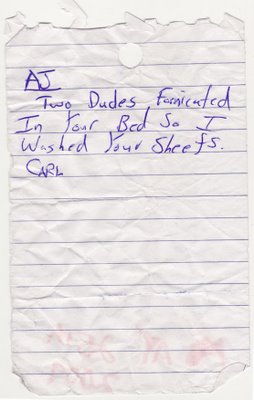 AJ
Two Dudes Fornicated
In Your Bed So I
Washed Your Sheets.
CARL